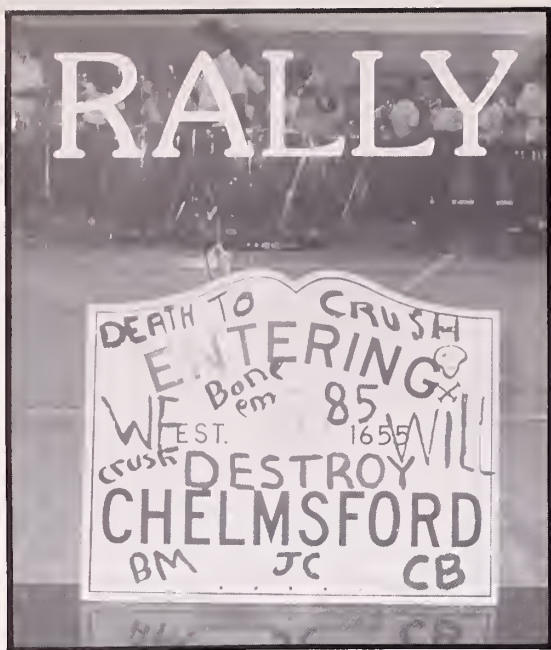 RALLY
DEATH TO CRUSH
ENTERING
Bone
em 85
WE EST. 1655 WILL
crush DESTROY
CHELMSFORD
BM JC CB